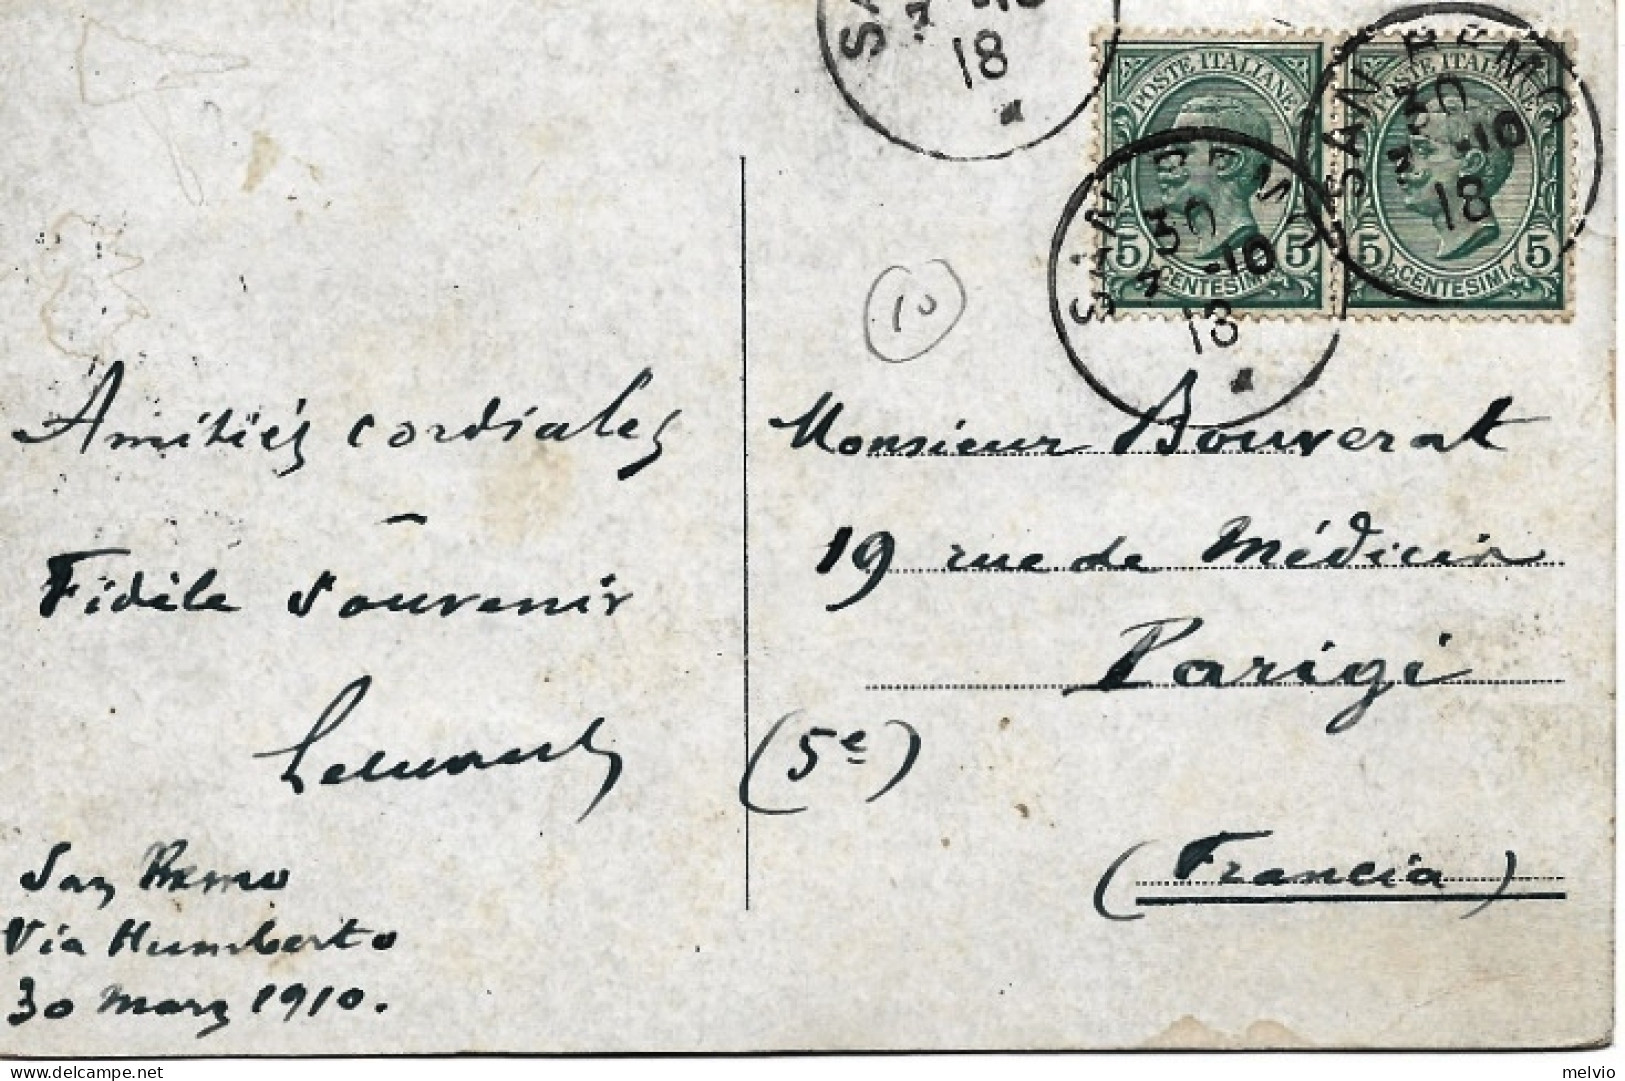 18
POSTE ITALIANE
5 CENTESIMI 5
SAN REMO
30
3 -10
18
POSTE ITALIANE
5 CENTESIMI 5
SAN REMO
30
3 -10
18
10
Amitiés cordiales
—
Fidèle Souvenir
San Remo
Via Humberto
30 mars 1910.
Monsieur Bouverat
19 rue de Médicis
Parigi
(5e)
(Francia)
delcampe.net
melvio